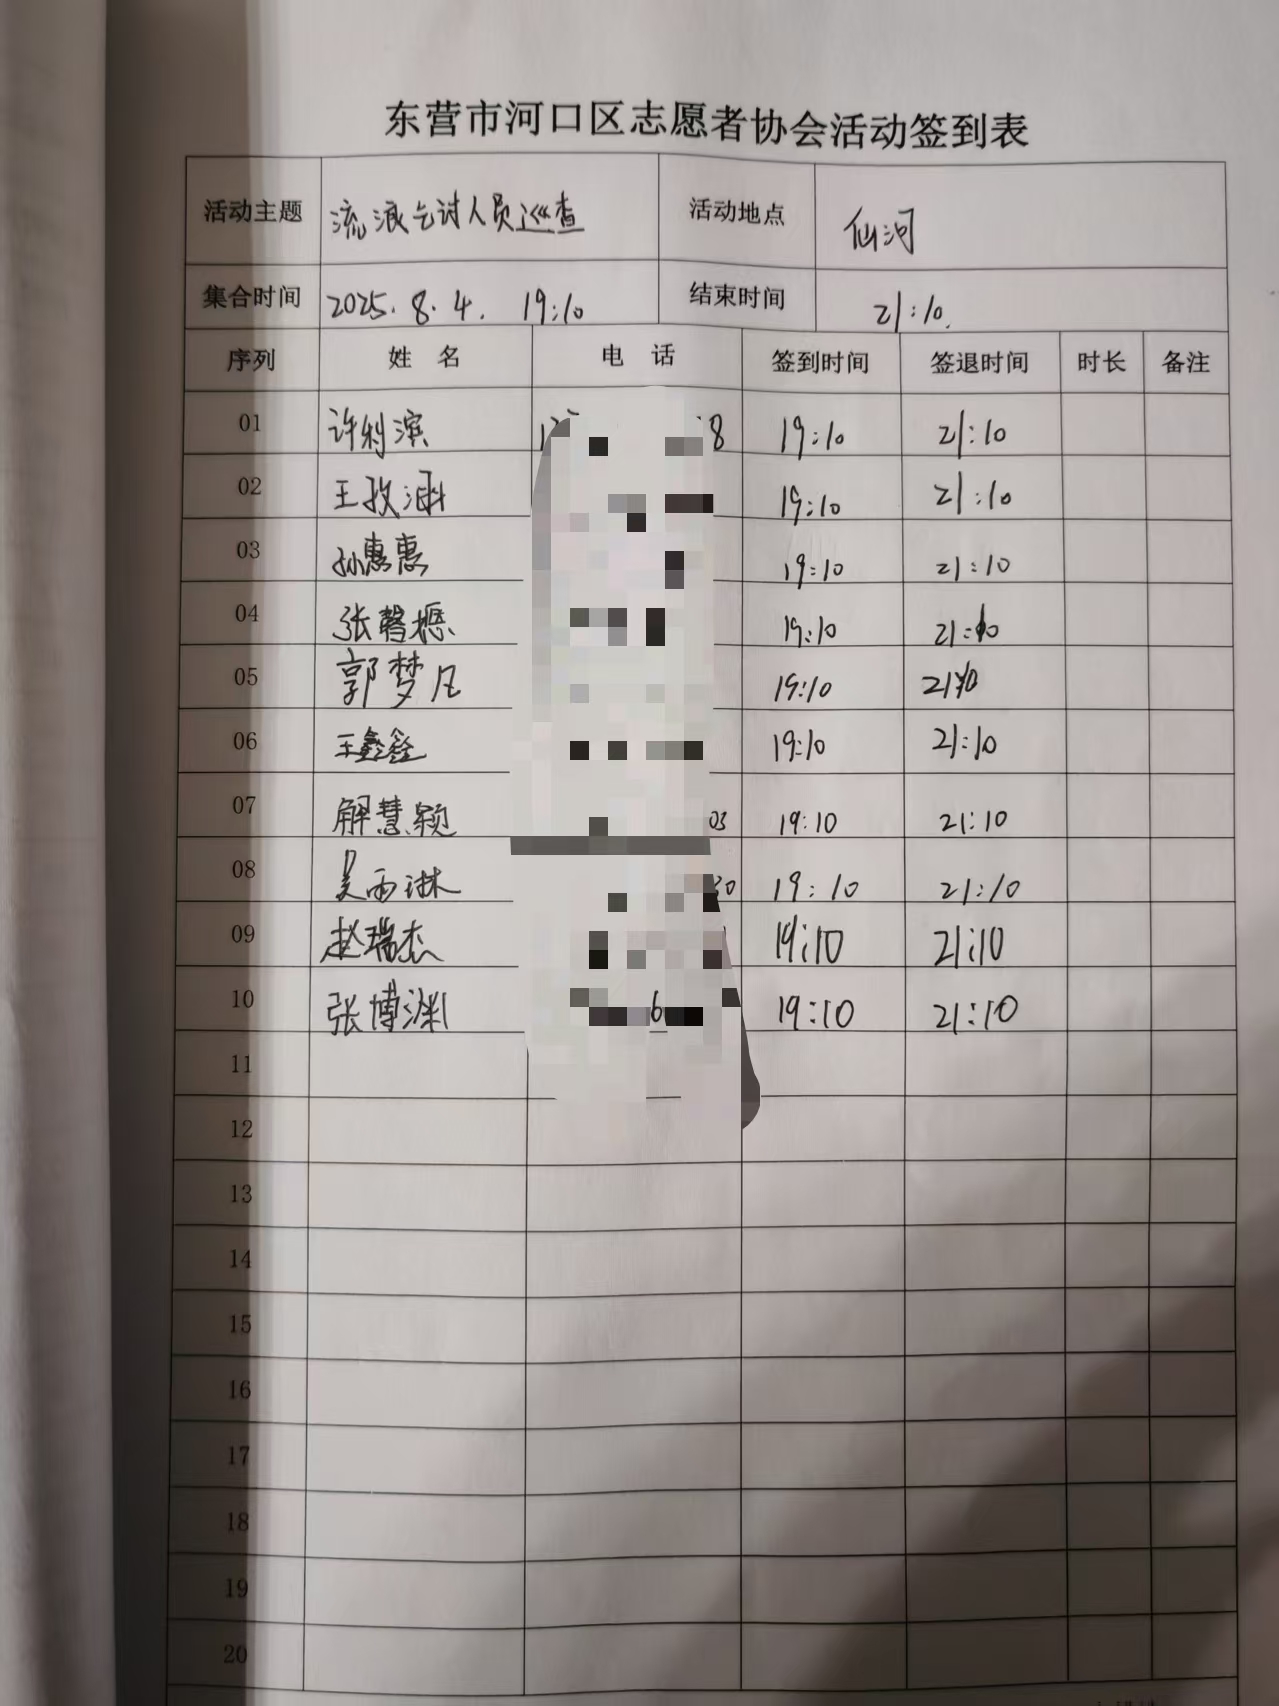 东营市河口区志愿者协会活动签到表
活动主题 流浪乞讨人员巡查 活动地点 仙河
集合时间 2025.8.4. 19:10 结束时间 21:10.
序列 姓名 电话 签到时间 签退时间 时长 备注
01 许利滨 8 19:10 21:10
02 王孜涵 19:10 21:10
03 孙惠惠 19:10 21:10
04 张馨 19:10 21:10
05 郭梦凡 19:10 21:10
06 王鑫鑫 19:10 21:10
07 解慧颖 03 19:10 21:10
08 吴雨琳 30 19:10 21:10
09 赵瑞杰 19:10 21:10
10 张博渊 6 19:10 21:10
11
12
13
14
15
16
17
18
19
20